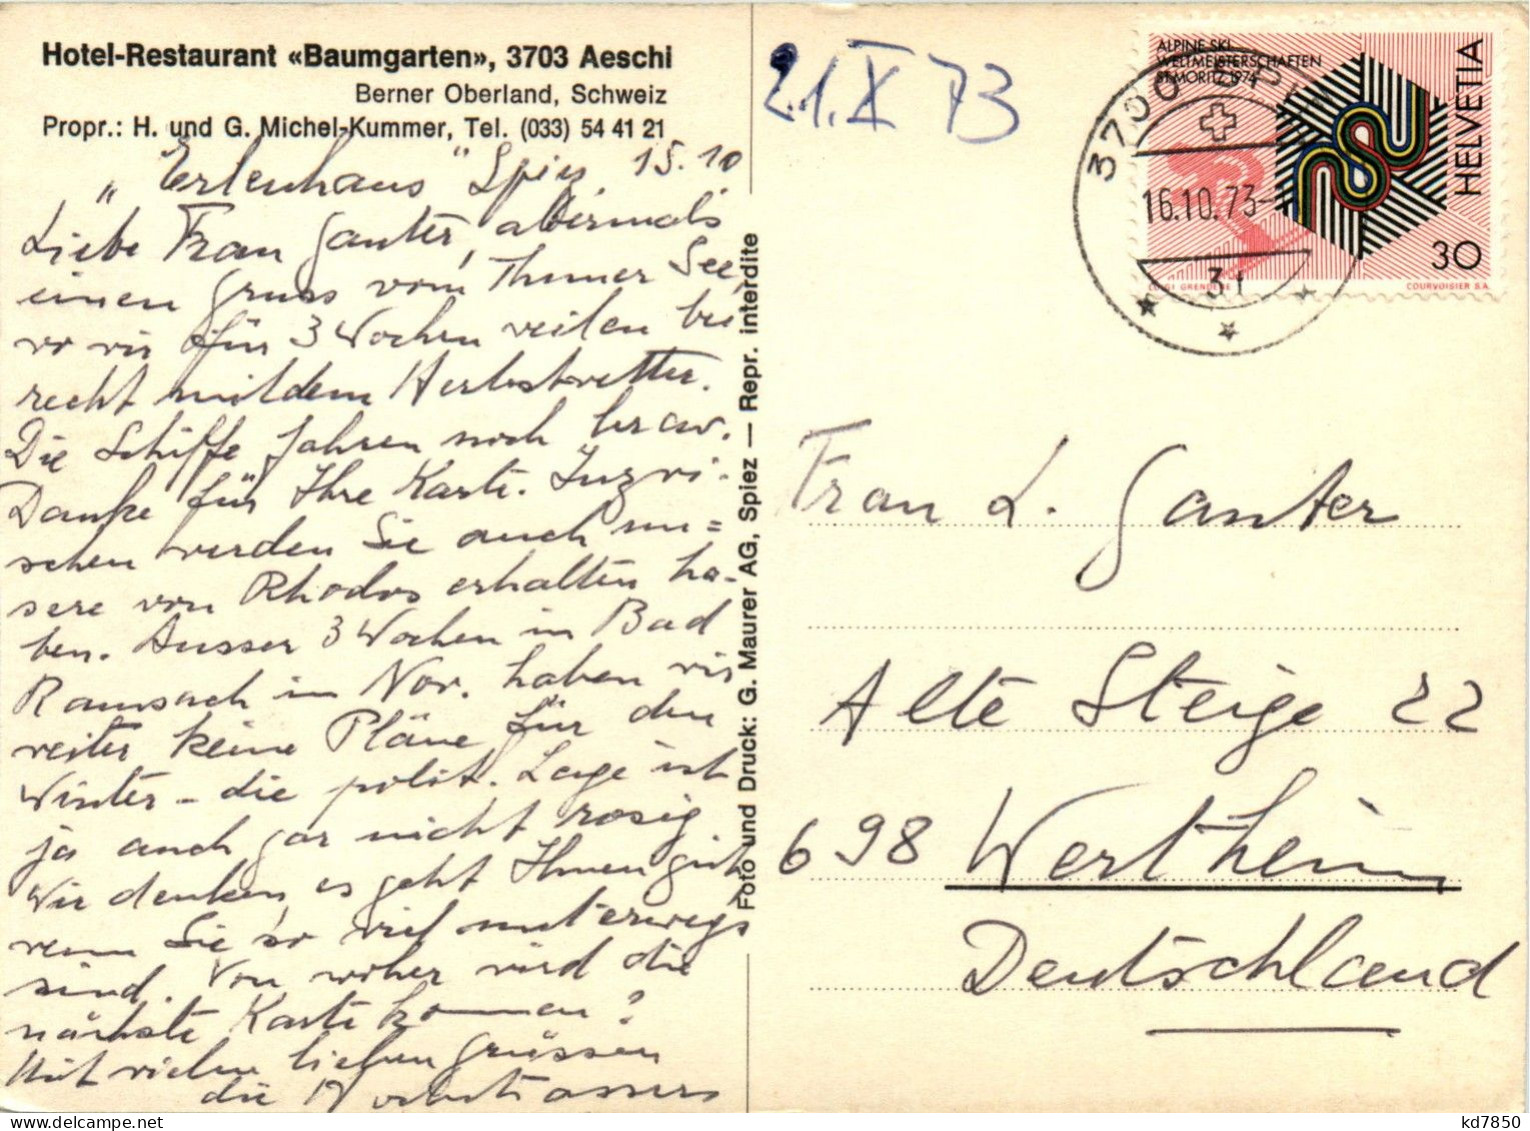 Hotel-Restaurant «Baumgarten», 3703 Aeschi
Berner Oberland, Schweiz
Propr.: H. und G. Michel-Kummer, Tel. (033) 54 41 21
"Erlenhaus" Spiez, 15.10
Liebe Frau Ganter, abermals
einen Gruss vom Thuner See,
wo wir für 3 Wochen weilen bei
recht mildem Herbstwetter.
Die Schiffe fahren noch brav.
Danke für Ihre Karte. Inzwi-
schen werden Sie auch un=
sere von Rhodos erhalten ha-
ben. Ausser 3 Wochen in Bad
Ramsach im Nov. haben wir
weiter keine Pläne für den
Winter - die polit. Lage ist
ja auch gar nicht rosig.
Wir denken, es geht Ihnen gut,
wenn Sie so viel unterwegs
sind. Von woher wird die
nächste Karte kommen?
Mit vielen lieben Grüssen
die
Foto und Druck: G. Maurer AG, Spiez — Repr. interdite
21.X 73
ALPINE SKI
WELTMEISTERSCHAFTEN
ST.MORITZ 1974
HELVETIA
30
LUIGI GRENDENE
COURVOISIER S.A.
3700 SPIEZ
16.10.73-
Frau L. Ganter
Alte Steige 22
698 Wertheim
Deutschland
kd7850